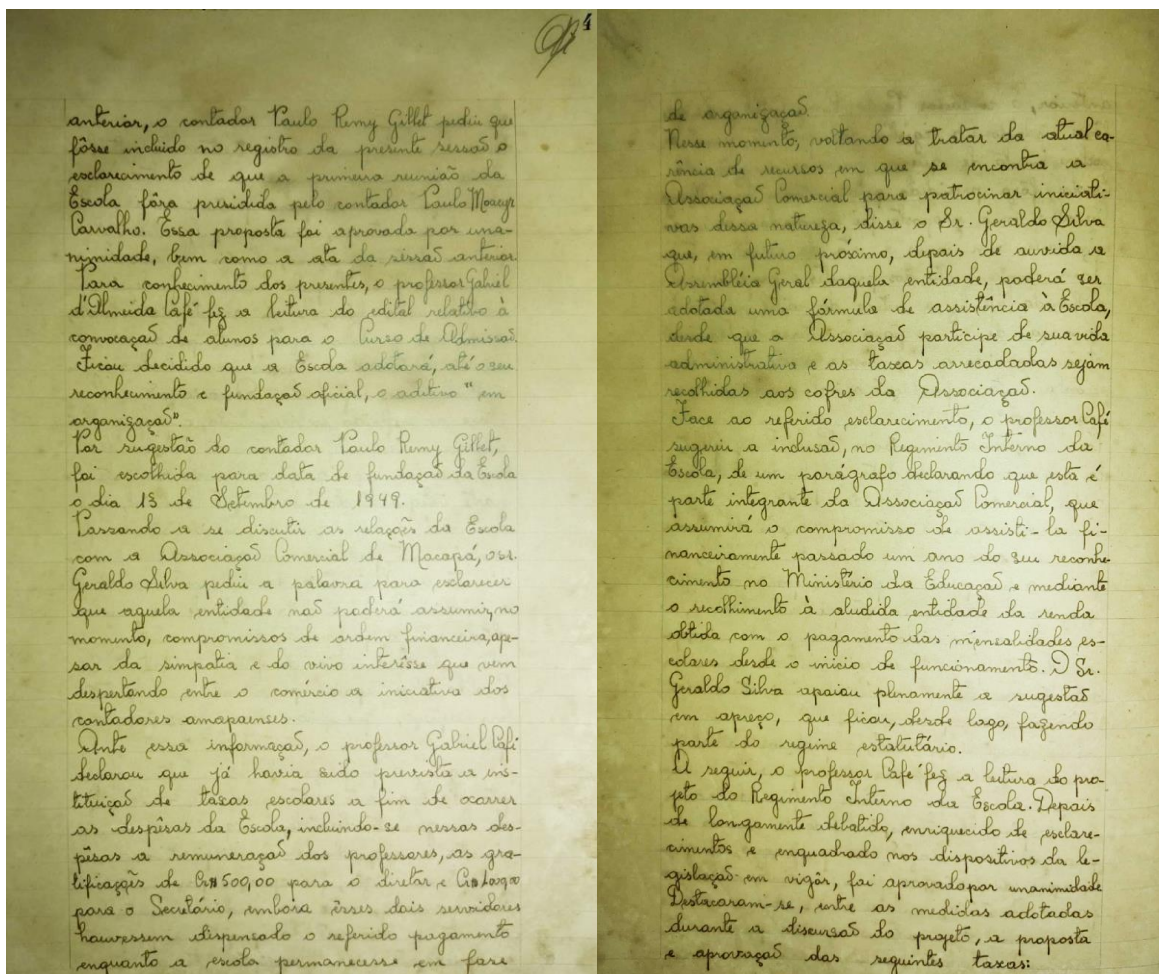 4
anterior, o contador Paulo Remy Gillet pediu que
fôsse incluido no registro da presente sessão o
esclarecimento de que a primeira reunião da
Escola fôra presidida pelo contador Paulo Moacyr
Carvalho. Essa proposta foi aprovada por una-
nimidade, bem como a ata da sessão anterior.
Para conhecimento dos presentes, o professor Gabriel
d'Almeida Café fez a leitura do edital relativo à
convocação de alunos para o Curso de Admissão.
Ficou decidido que a Escola adotará, até o seu
reconhecimento e fundação oficial, o aditivo "em
organização".
Por sugestão do contador Paulo Remy Gillet,
foi escolhida para data de fundação da Escola
o dia 13 de Setembro de 1949.
Passando a se discutir as relações da Escola
com a Associação Comercial de Macapá, o sr.
Geraldo Silva pediu a palavra para esclarecer
que aquela entidade não poderá assumir, no
momento, compromissos de ordem financeira, ape-
sar da simpatia e do vivo interêsse que vem
despertando entre o comércio a iniciativa dos
contadores amapaenses.
Ante essa informação, o professor Gabriel Café
declarou que já havia sido prevista a ins-
tituição de taxas escolares a fim de ocorrer
as despêsas da Escola, incluindo-se nessas des-
pêsas a remuneração dos professores, as gra-
tificações de Cr$ 500,00 para o diretor e
para o Secretário, embora êsses dois servidores
houvessem dispensado o referido pagamento
enquanto a escola permanecesse em fase
de organização.
Nesse momento, voltando a tratar da atual ca-
rência de recursos em que se encontra a
Associação Comercial para patrocinar iniciati-
vas dessa natureza, disse o Sr. Geraldo Silva
que, em futuro próximo, depois de ouvida a
Assembléia Geral daquela entidade, poderá ser
adotada uma fórmula de assistência à Escola,
desde que a Associação participe de sua vida
administrativa e as taxas arrecadadas sejam
recolhidas aos cofres da Associação.
Face ao referido esclarecimento, o professor Café
sugeriu a inclusão, no Regimento Interno da
Escola, de um parágrafo declarando que esta é
parte integrante da Associação Comercial, que
assumirá o compromisso de assisti-la fi-
nanceiramente passado um ano do seu reconhe-
cimento no Ministério da Educação e mediante
o recolhimento à aludida entidade da renda
obtida com o pagamento das mensalidades es-
colares desde o inicio de funcionamento. O Sr.
Geraldo Silva apoiou plenamente a sugestão
em apreço, que ficou, desde logo, fazendo
parte do regime estatutário.
A seguir, o professor Café fez a leitura do pro-
jeto do Regimento Interno da Escola. Depois
de longamente debatido, enriquecido de esclare-
cimentos e enquadrado nos dispositivos da le-
gislação em vigôr, foi aprovado por unanimidade
Destacaram-se, entre as medidas adotadas
durante a discursão do projeto, a proposta
e aprovação das seguintes taxas: